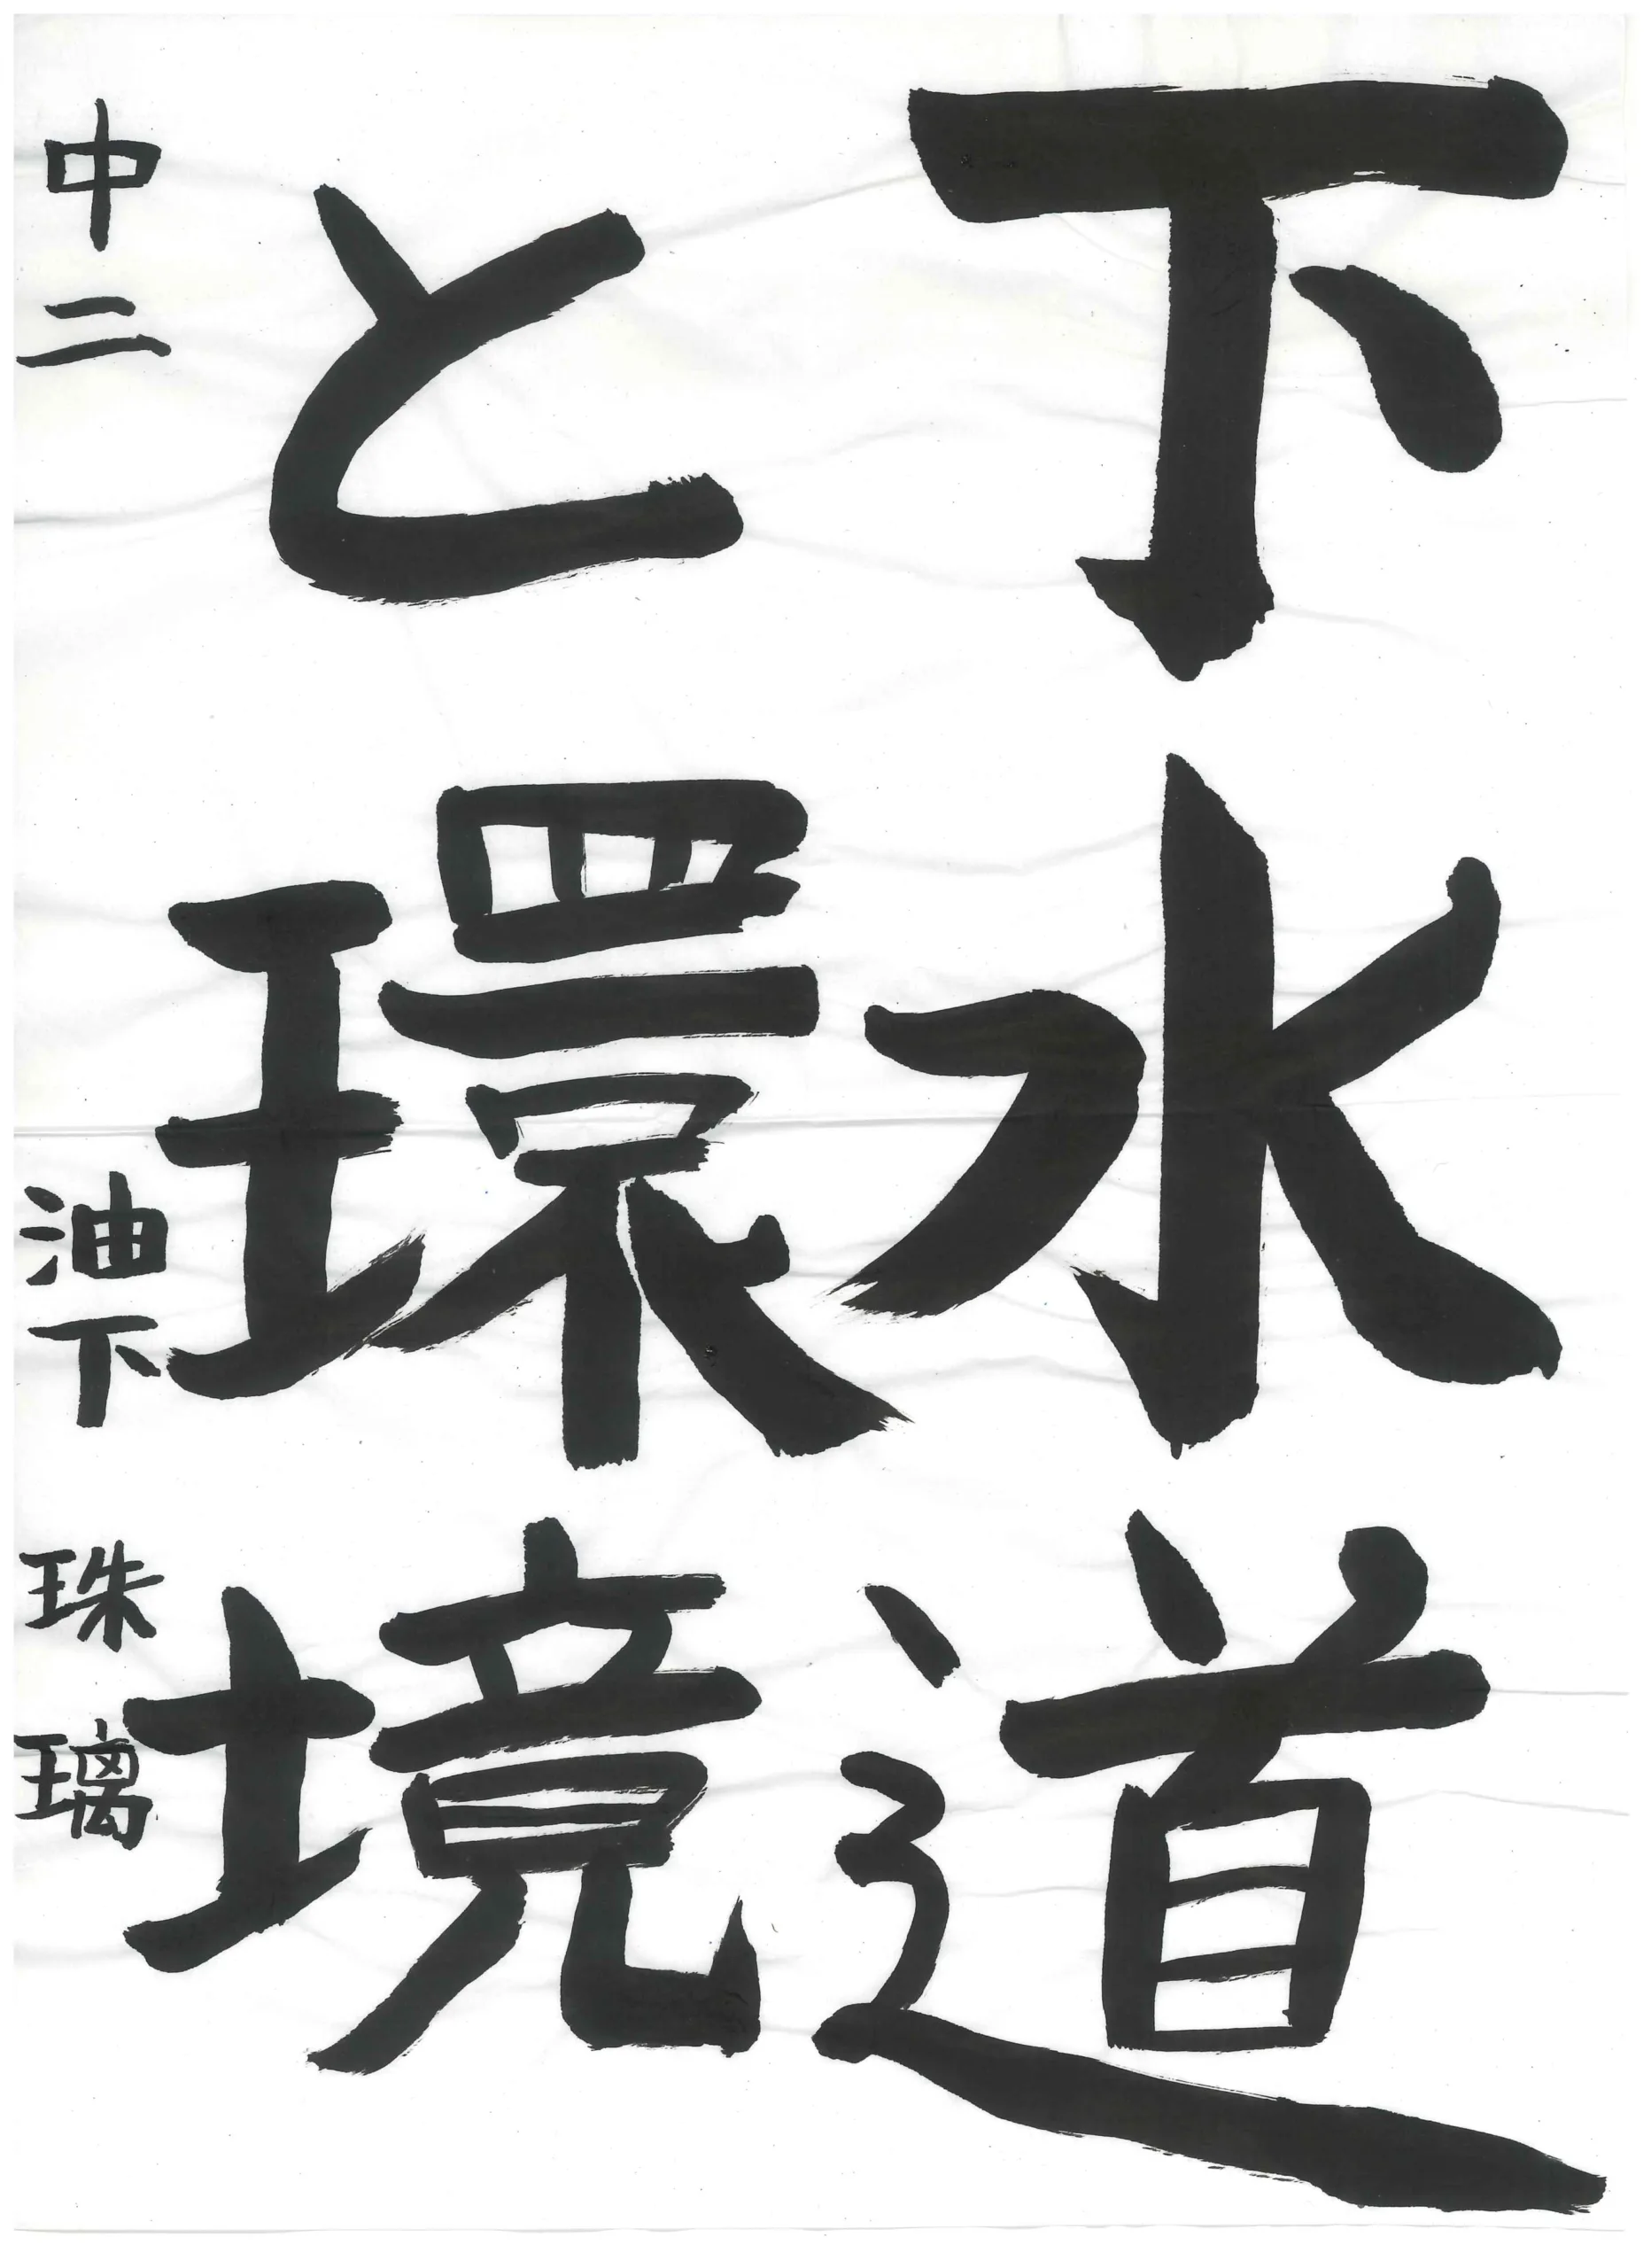 下水道
と環境
中二 油下 珠璃